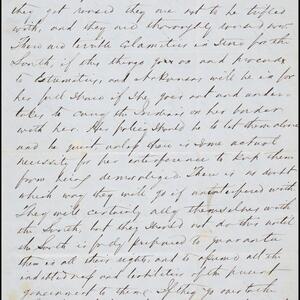 they get roused they are not to be trifled
with, and they are thoroughly roused now.
There are terrible calamities in store for the
South, if this thing goes on and proceeds
to extremities, and Arkansas will be in for
her full share if she goes out and under-
takes to carry the Indians on her border
with her. Her policy should be to let them alone
and be quiet unless there is some actual
necessity for her interference to keep them
from being demoralized. There is no doubt
which way they will go if uninterfered with.
They will certainly ally themselves with
the South, but they should not do this until
the South is fully prepared to guarantee
them in all their rights, and to assume all the
indebtedness and liabilities of the present
government to them. If they go over to the